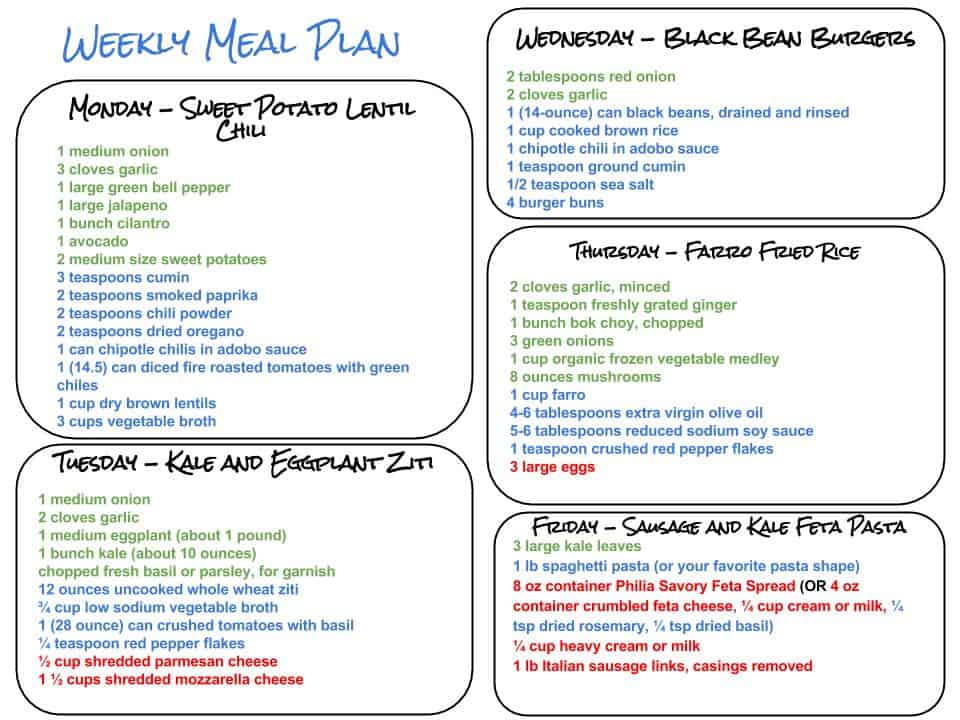 Weekly Meal Plan
Monday – Sweet Potato Lentil
Chili
1 medium onion
3 cloves garlic
1 large green bell pepper
1 large jalapeno
1 bunch cilantro
1 avocado
2 medium size sweet potatoes
3 teaspoons cumin
2 teaspoons smoked paprika
2 teaspoons chili powder
2 teaspoons dried oregano
1 can chipotle chilis in adobo sauce
1 (14.5) can diced fire roasted tomatoes with green
chiles
1 cup dry brown lentils
3 cups vegetable broth
Tuesday – Kale and Eggplant Ziti
1 medium onion
2 cloves garlic
1 medium eggplant (about 1 pound)
1 bunch kale (about 10 ounces)
chopped fresh basil or parsley, for garnish
12 ounces uncooked whole wheat ziti
¾ cup low sodium vegetable broth
1 (28 ounce) can crushed tomatoes with basil
¼ teaspoon red pepper flakes
½ cup shredded parmesan cheese
1 ½ cups shredded mozzarella cheese
Wednesday – Black Bean Burgers
2 tablespoons red onion
2 cloves garlic
1 (14-ounce) can black beans, drained and rinsed
1 cup cooked brown rice
1 chipotle chili in adobo sauce
1 teaspoon ground cumin
1/2 teaspoon sea salt
4 burger buns
Thursday – Farro Fried Rice
2 cloves garlic, minced
1 teaspoon freshly grated ginger
1 bunch bok choy, chopped
3 green onions
1 cup organic frozen vegetable medley
8 ounces mushrooms
1 cup farro
4-6 tablespoons extra virgin olive oil
5-6 tablespoons reduced sodium soy sauce
1 teaspoon crushed red pepper flakes
3 large eggs
Friday – Sausage and Kale Feta Pasta
3 large kale leaves
1 lb spaghetti pasta (or your favorite pasta shape)
8 oz container Philia Savory Feta Spread (OR 4 oz
container crumbled feta cheese, ¼ cup cream or milk, ¼
tsp dried rosemary, ¼ tsp dried basil)
¼ cup heavy cream or milk
1 lb Italian sausage links, casings removed